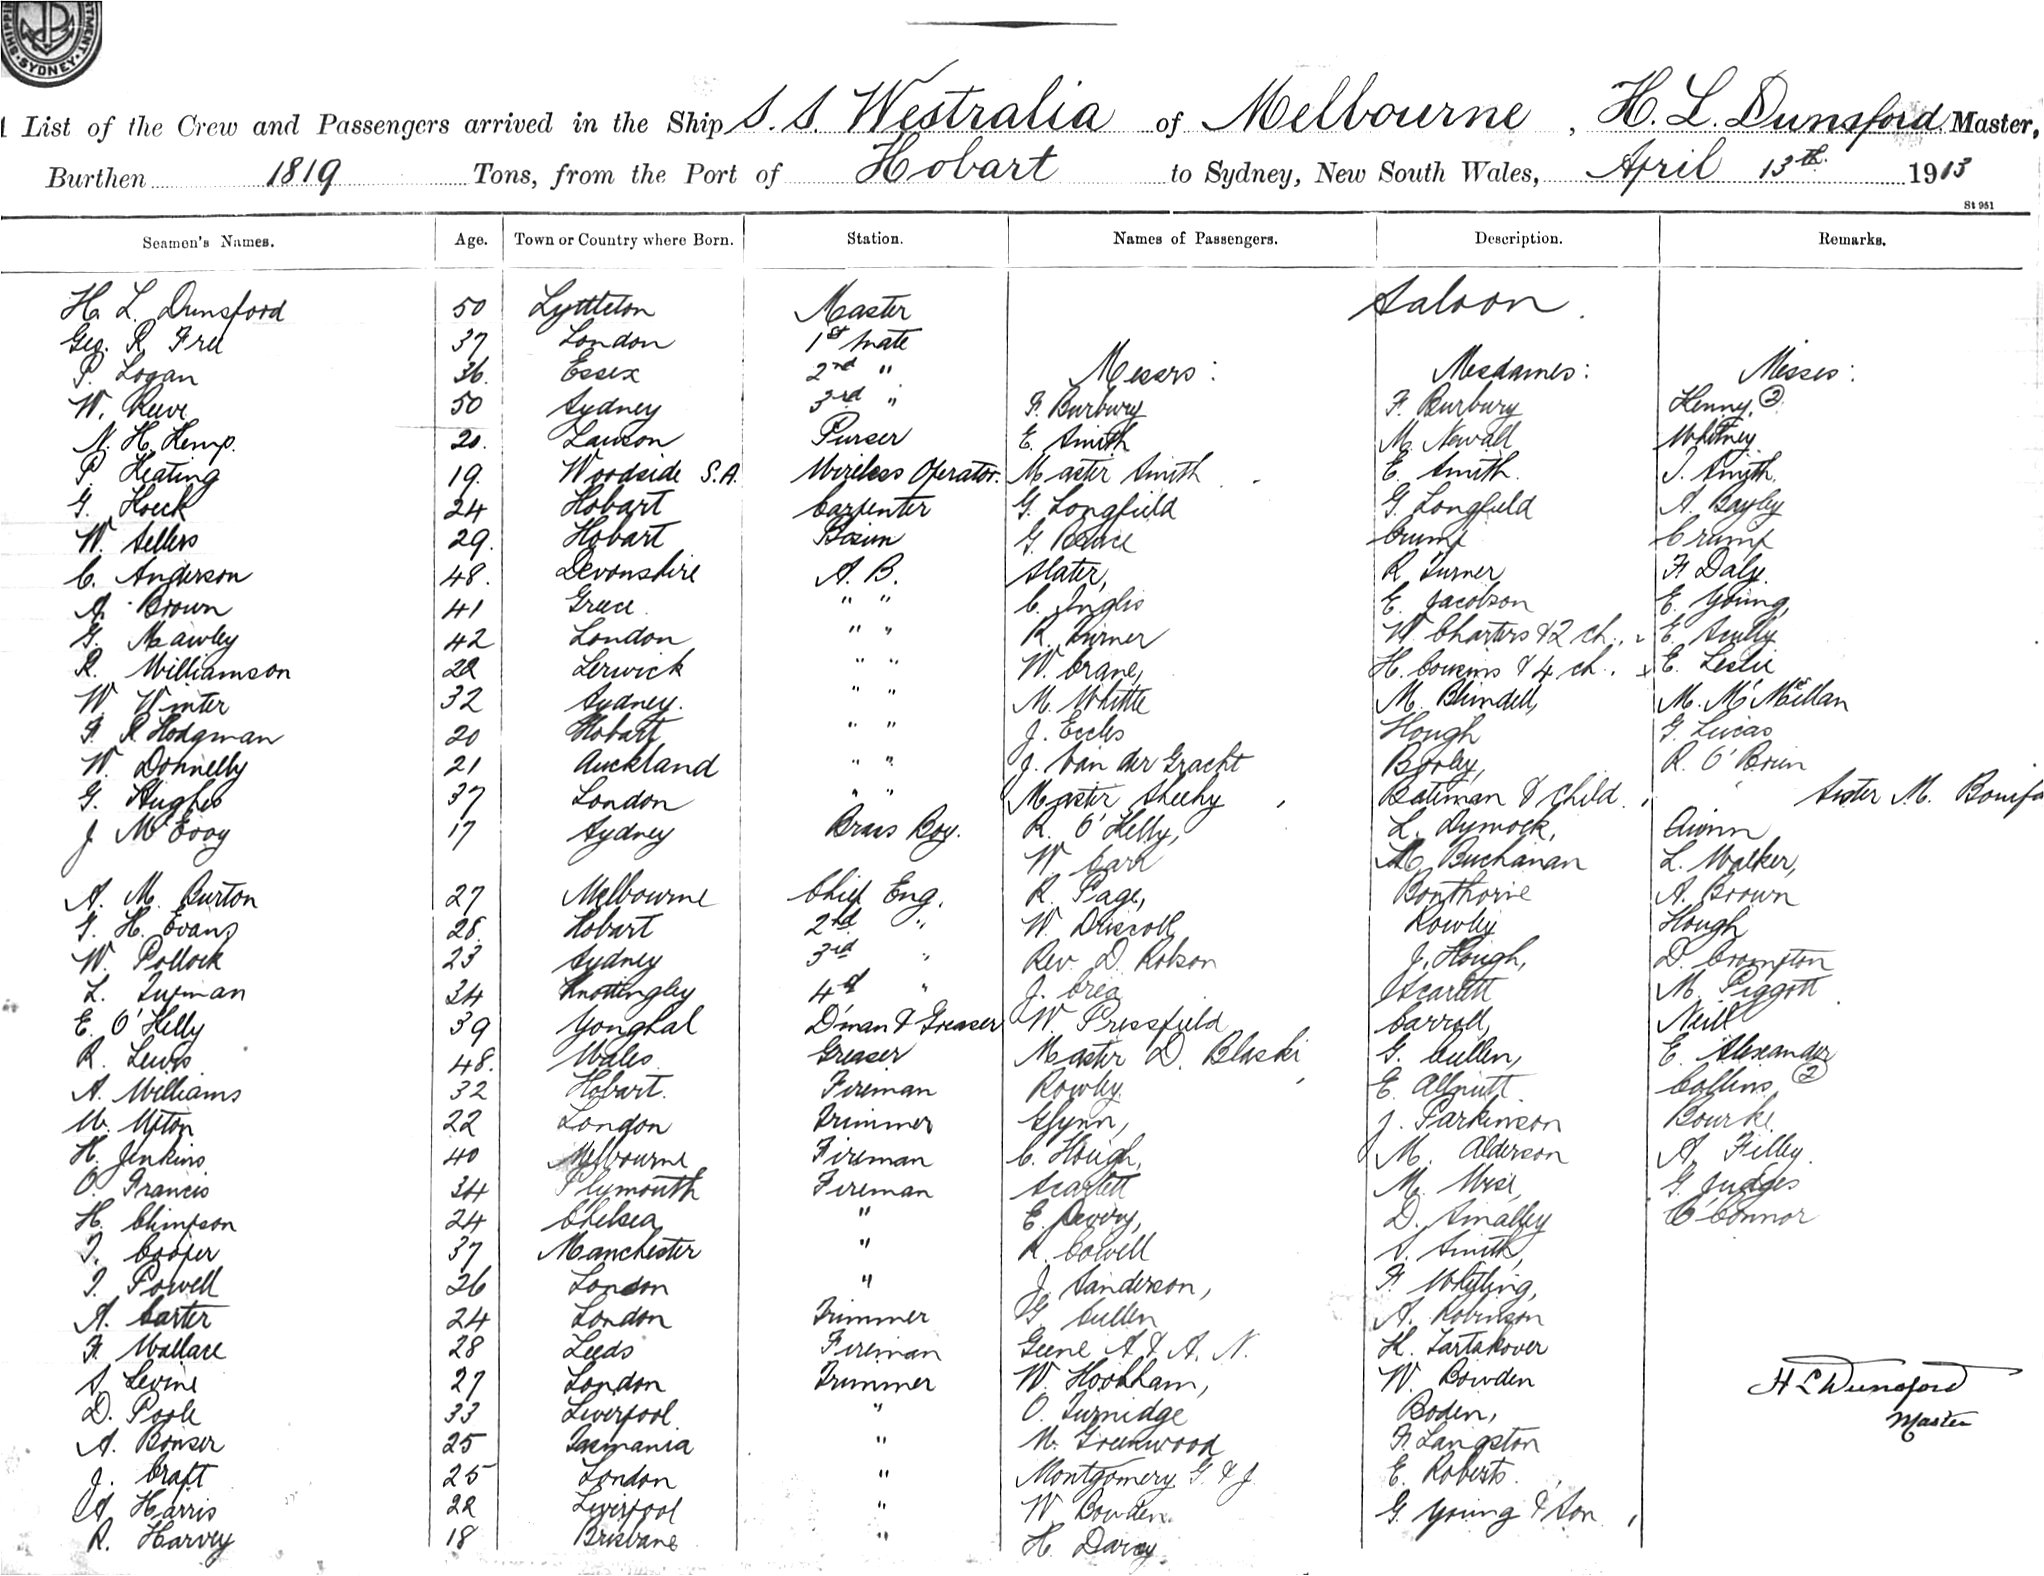 SHIPPING
DEPARTMENT
SYDNEY
List of the Crew and Passengers arrived in the Ship S. S. Westralia of Melbourne, H. L. Dunsford Master,
Burthen 1819 Tons, from the Port of Hobart to Sydney, New South Wales, April 13th. 1913
St 951
Seamen's Names. Age. Town or Country where Born. Station. Names of Passengers. Description. Remarks.
H. L. Dunsford 50 Lyttleton Master Saloon.
Geo. R. Free 37 London 1st Mate
P. Logan 36. Essex 2nd " Messrs: Mesdames: Misses:
W. Reeve 50 Sydney 3rd " F. Burbury F. Burbury Kenny, 2
N. H. Kemp. 20. Lawson Purser E. Smith M. Newall Whitney
P. Keating 19. Woodside S.A. Wireless Operator. Master Smith E. Smith. Smith.
G. Hoeck 24 Hobart Carpenter G. Longfield G. Longfield A. Bayley
W. Sellers 29. Hobart Bosun G. Crump Crump
C. Anderson 48. Devonshire A. B. Slater, R Turner F. Daly.
A. Brown 41 Greece. " " C. Inglis E. Jacobson E. Young,
G. Mawley 42 London " " R. Turner W. Charters & 2 ch. E. Scully
R. Williamson 22 Lerwick " " W. Crane, H. Cousins & 4 ch. E. Leslie
W. Winter 32 Sydney. " " M. Whittle M. Blundell, M. McMillan
F. R. Hodgman 20 Hobart " " J. Eccles Hough G. Lucas
W. Donnelly 21 Auckland " " J. Van der Gracht Boxley, R. O'Brien
G. Hughes 37 London " " Master Sheehy Bateman & Child. Sister M.
J McEvoy 17 Sydney Brass Boy. R. O'Kelly, L. Dymock,
W Carr M. Buchanan L. Walker,
A. M. Burton 27 Melbourne Chief Eng. R. Page, Bonthorne A. Brown
H. Evans 28. Hobart 2nd " W. Driscoll Rowley Hough
W. Pollock 23 Sydney 3rd " Rev. D. Robson J. Hough, D. Crompton
L. 34 Knottingley 4th " J. Crea Scarlett M. Piggott
E. O'Kelly 39 Yonghal D'man & Greaser W. Pressfield Carroll, Neill
R. Lewis 48. Wales. Greaser Master D. Blaski G. Cullen, E. Alexander
A. Williams 32 Hobart. Fireman Rowley. E. Allnutt Collins, 2
W. Upton 22 London Trimmer Glynn, J. Parkinson Bourke.
H. Jenkins 40 Melbourne Fireman C. Hough, M. Alderson A. Filley.
O. Francis 34 Plymouth Fireman Scarlett M. Wise, G. Judges
H. Climpson 24 Chelsea " E. D. Smalley O'Connor
T. Cooper 37 Manchester " R. Cowell S. Smith,
T. Powell 26 London " J. Sanderson, F. Whitling,
A. Carter 24 London Trimmer G. Cullen A. Robinson
F. Wallace 28 Leeds Fireman Geene A & A. N. H. Tartakover
S. Levine 27 London Trimmer W. Hookham, W. Bowden
D. Poole 33 Liverpool " O. Turnidge Boden,
A. Bonser 25 Tasmania " M. Greenwood F. Langston
J. Craft 25 London " Montgomery G. & J. E. Roberts.
A Harris 22 Liverpool " W Bowden. G. Young & Son
R. Harvey 18 Brisbane " H. Darcy
H L Dunsford
Master